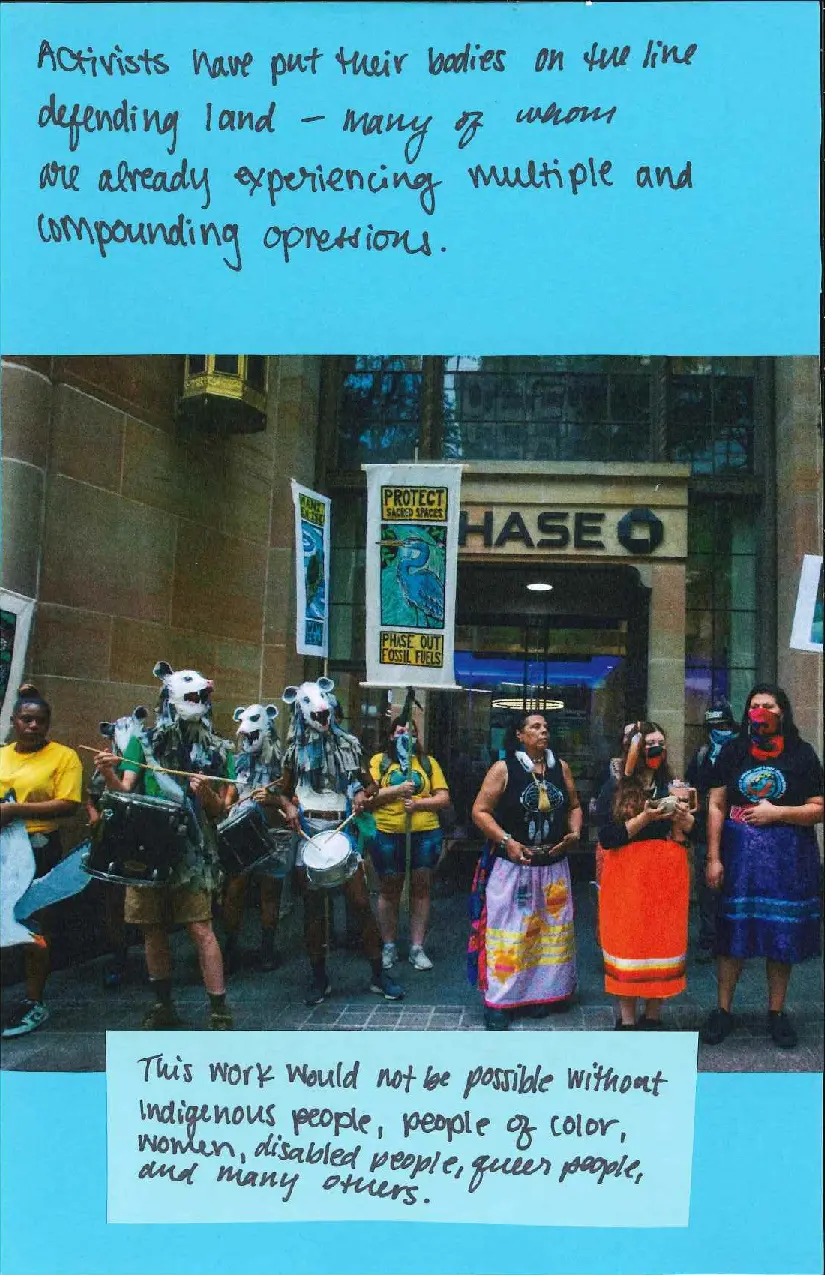 Activists have put their bodies on the line
defending land – many of whom
are already experiencing multiple and
compounding opressions.
PROTECT
SACRED SPACES
PHASE OUT
FOSSIL FUELS
HASE
This work would not be possible without
Indigenous people, people of color,
women, disabled people, queer people,
and many others.